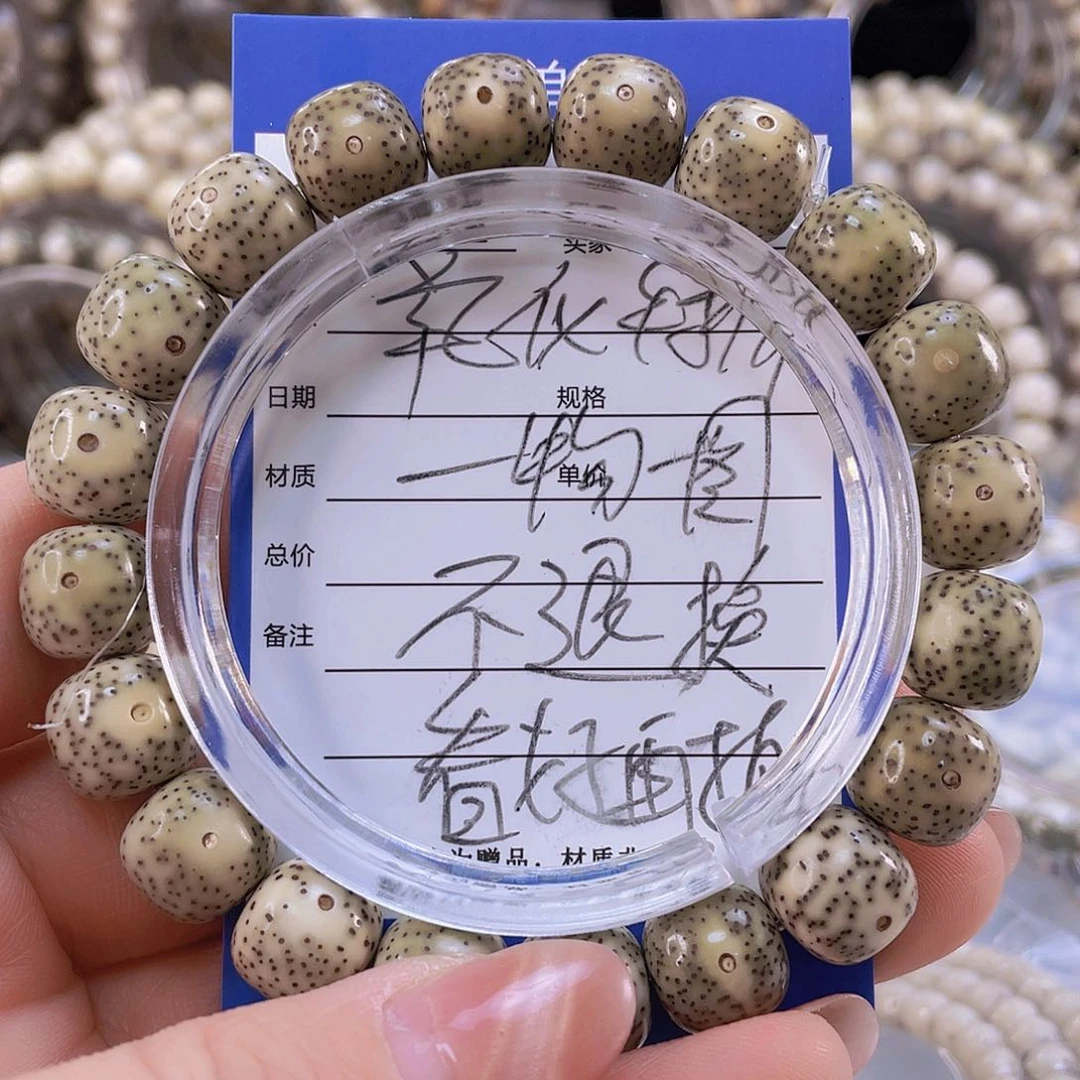 买家
日期 规格
材质 单价
一物一图
总价
不退换
备注
看好再拍
为赠品，材质